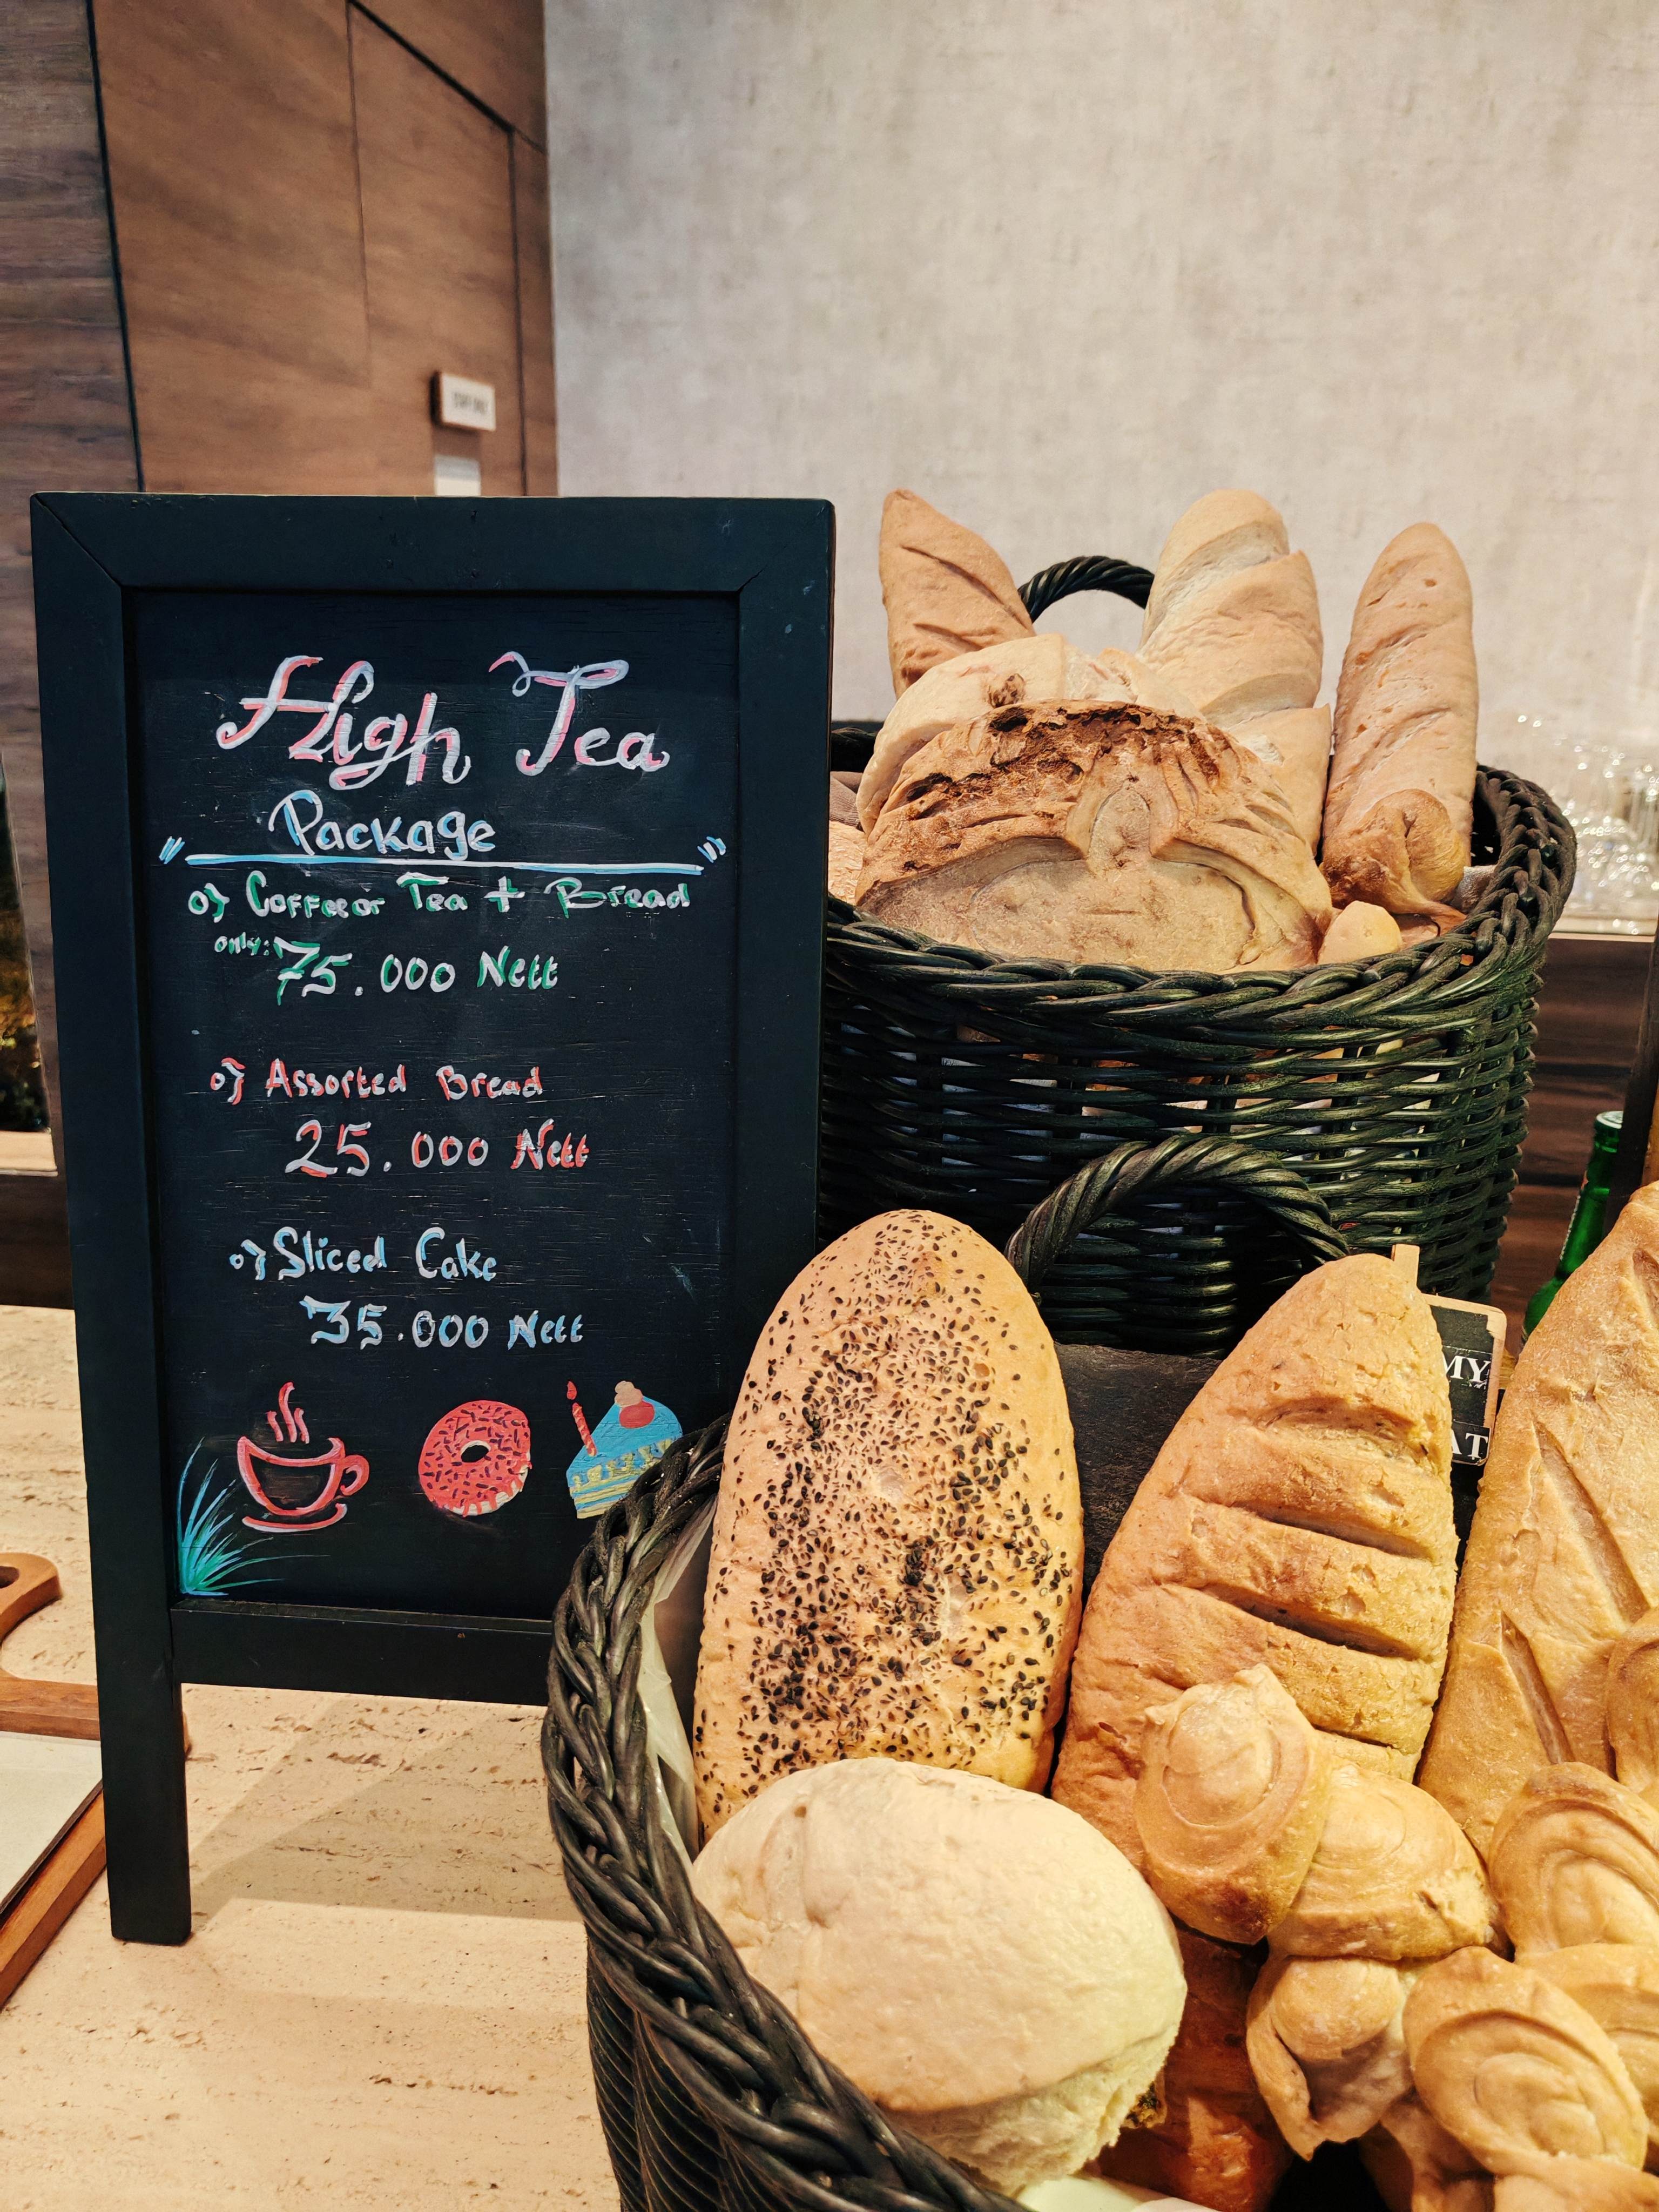 High Tea
Package
o} Coffee or Tea + Bread
only: 75.000 Nett
o} Assorted Bread
25.000 Nett
o} Sliced Cake
35.000 Nett
MY
AT